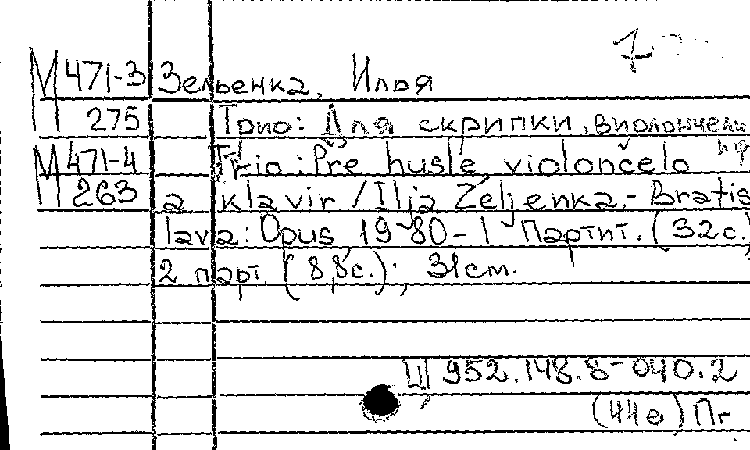 7
М 471-3 Зельенка, Илья
275 Трио: Для скрипки, виолончели
М 471-4 Trio: Pre husle, violončelo
263 a klavir / Ilja Zeljenka.- Bratis
lava: Opus, 1980 - 1 Партит. (32с.),
2 парт (8,8с.); 31см.
Ц 952.148.8-040.2
(44е) Пг